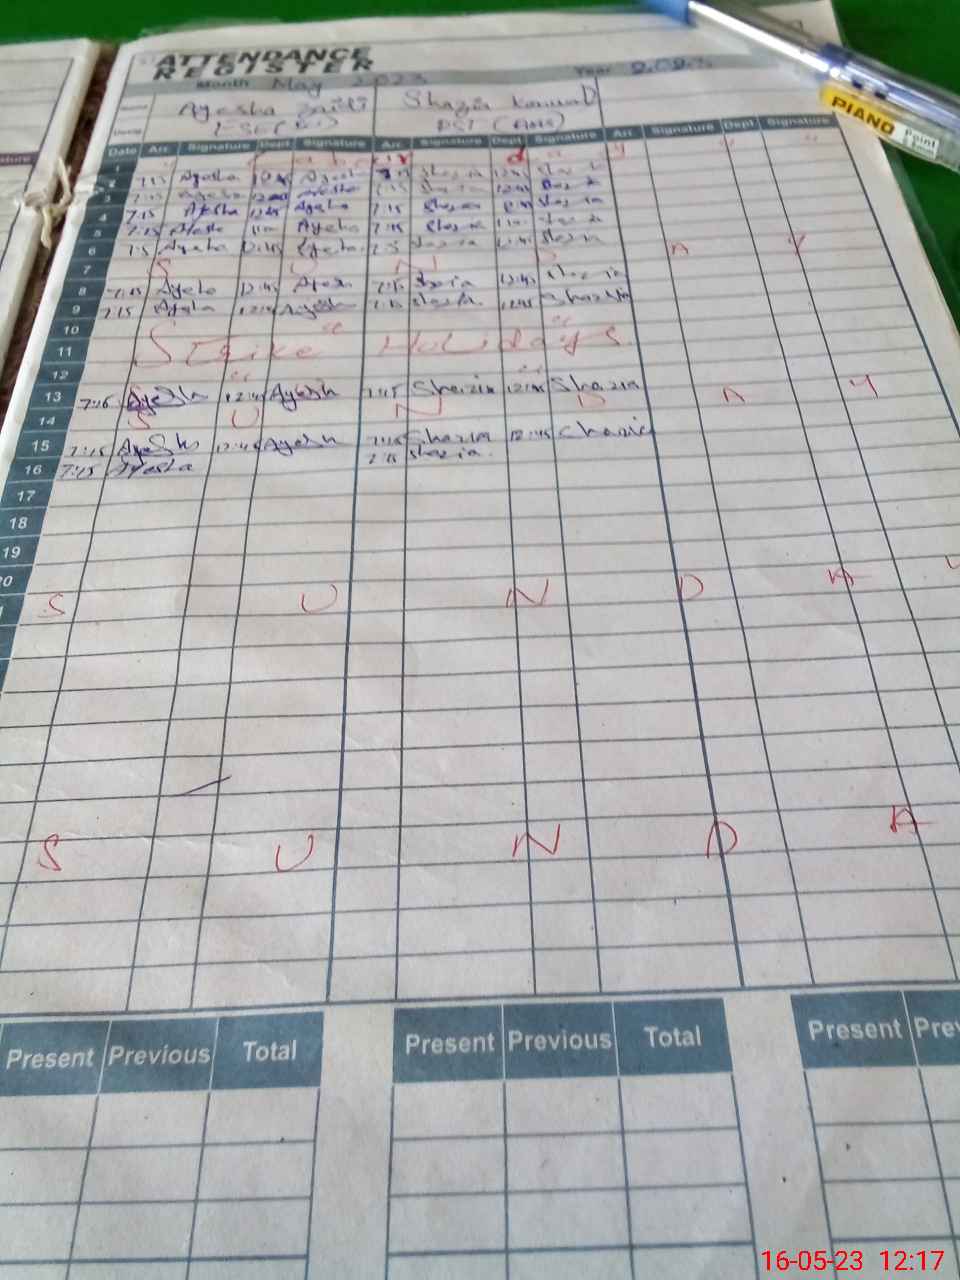 ATTENDANCE
REGISTER
Month May 2023 Year
Ayesha Zaidi Shazia Kanwal
PST
Date Arr. Signature Dept Signature Arr. Signature Dept Signature Arr. Signature Dept Signature
1
2 7:15 Ayesha 12:45 Ayesha 7:15 Shazia 12:45 Shazia
3 7:15 Ayesha Ayesha 7:15 Shazia 12:45 Shazia
4 7:15 Ayesha 12:45 Ayesha 7:15 Shazia 12:45 Shazia
5 7:15 Ayesha Ayesha 7:15 Shazia Shazia
6 Ayesha 12:45 Ayesha Shazia 12:45 Shazia
7 S U N D A Y
8 7:15 Ayesha 12:45 Ayesha 7:15 Shazia 12:45 Shazia
9 7:15 Ayesha 12:45 Ayesha 7:15 Shazia 12:45 Shazia
10
11 Holidays
12
13 7:15 Ayesha 12:45 Ayesha 7:15 Shazia 12:45 Shazia
14 S U N D A Y
15 7:15 Ayesha 12:45 Ayesha 7:15 Shazia 12:45 Shazia
16 7:15 Ayesha 7:15 Shazia
17
18
19
20
S U N D A Y
S U N D A
Present Previous Total Present Previous Total Present
PIANO
Point
16-05-23 12:17